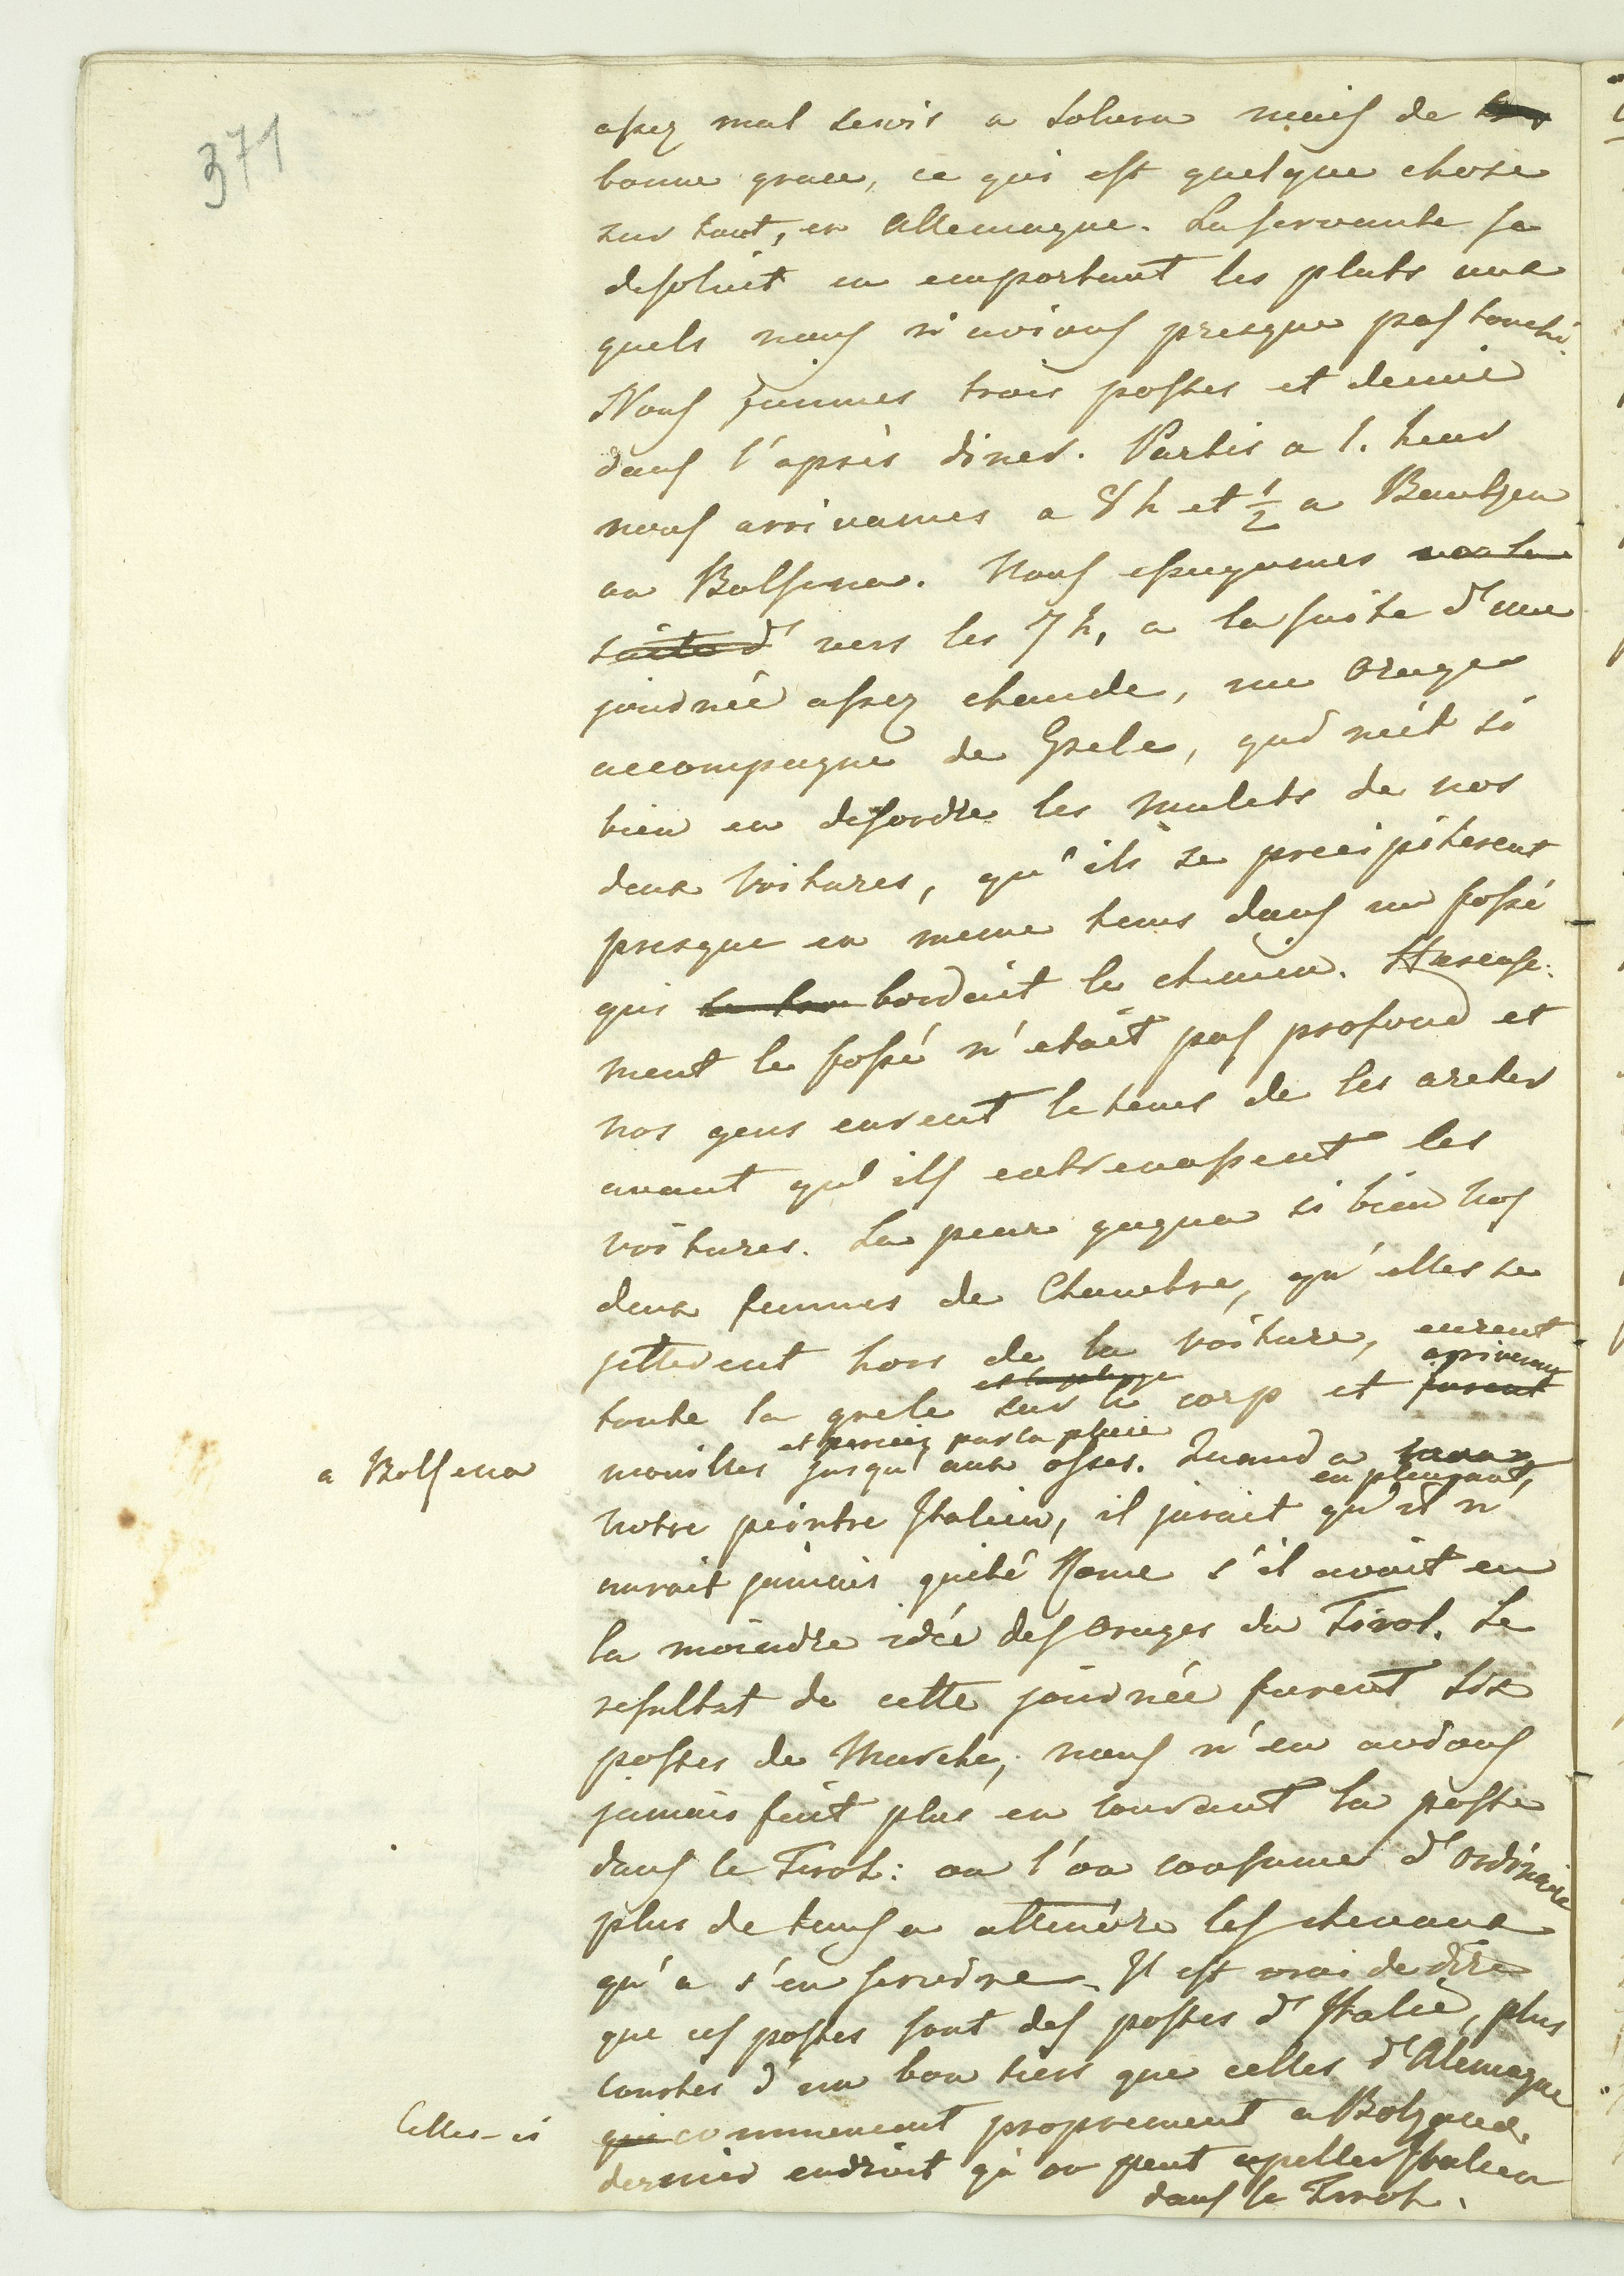 371
assez mal servis a Solurn mais de
bonne grace, ce qui est quelque chose
sur tout, en Allemagne. La servante se
desoloit en emportant les plats aux
quels nous n'avions presque pas touché.
Nous fimmes trois postes et demie
dans l'après diner. Partis a 1. heur
nous arrivames a 8 h et ½ a Bautzen
ou Bolsena. Nous essuyames
suite d' vers les 7 h, a la suite d'une
journée assez chaude, un orage
accompagné de Grele, qui mit si
bien en desordre les mulets de nos
deux voitures, qu'ils se precipiterent
presque en meme tems dans un fossé
qui bordait le chemin. Hureuse-
ment le fossé n'etait pas profond et
nos gens eurent le tems de les areter
avant qu'ils entrenassent les
voitures. La peur gagna si bien nos
deux femmes de Chambre, qu'elles se
jetterent hors de la voiture, eurent
et la pluye
arriverent
toute la grele sur le corp et furent
et perceés par la pluie
a Bolsena
mouilles jusqu'aux osses. Quand a
en pleurant,
notre peintre Italien, il jurait qu'il n'
aurait jamais quité Rome s'il avait eu
la moindre idée des orages du Tirol. Le
resultat de cette journée furent six
postes de Marche, nous n'en avions
jamais fait plus en courant la poste
dans le Tirol: ou l'on consume d'ordinaire
plus de tems a attendre les chevaux
qu'a s'en servire. Il est vrai de dire
que ces postes sont des postes d'Italie, plus
courtes d'un bon tiers que celles d'Alemagne
Celles-ci
qui commencent proprement a Bolzano,
dernier endroit qu'on peut apeller Italien
dans le Tirol.